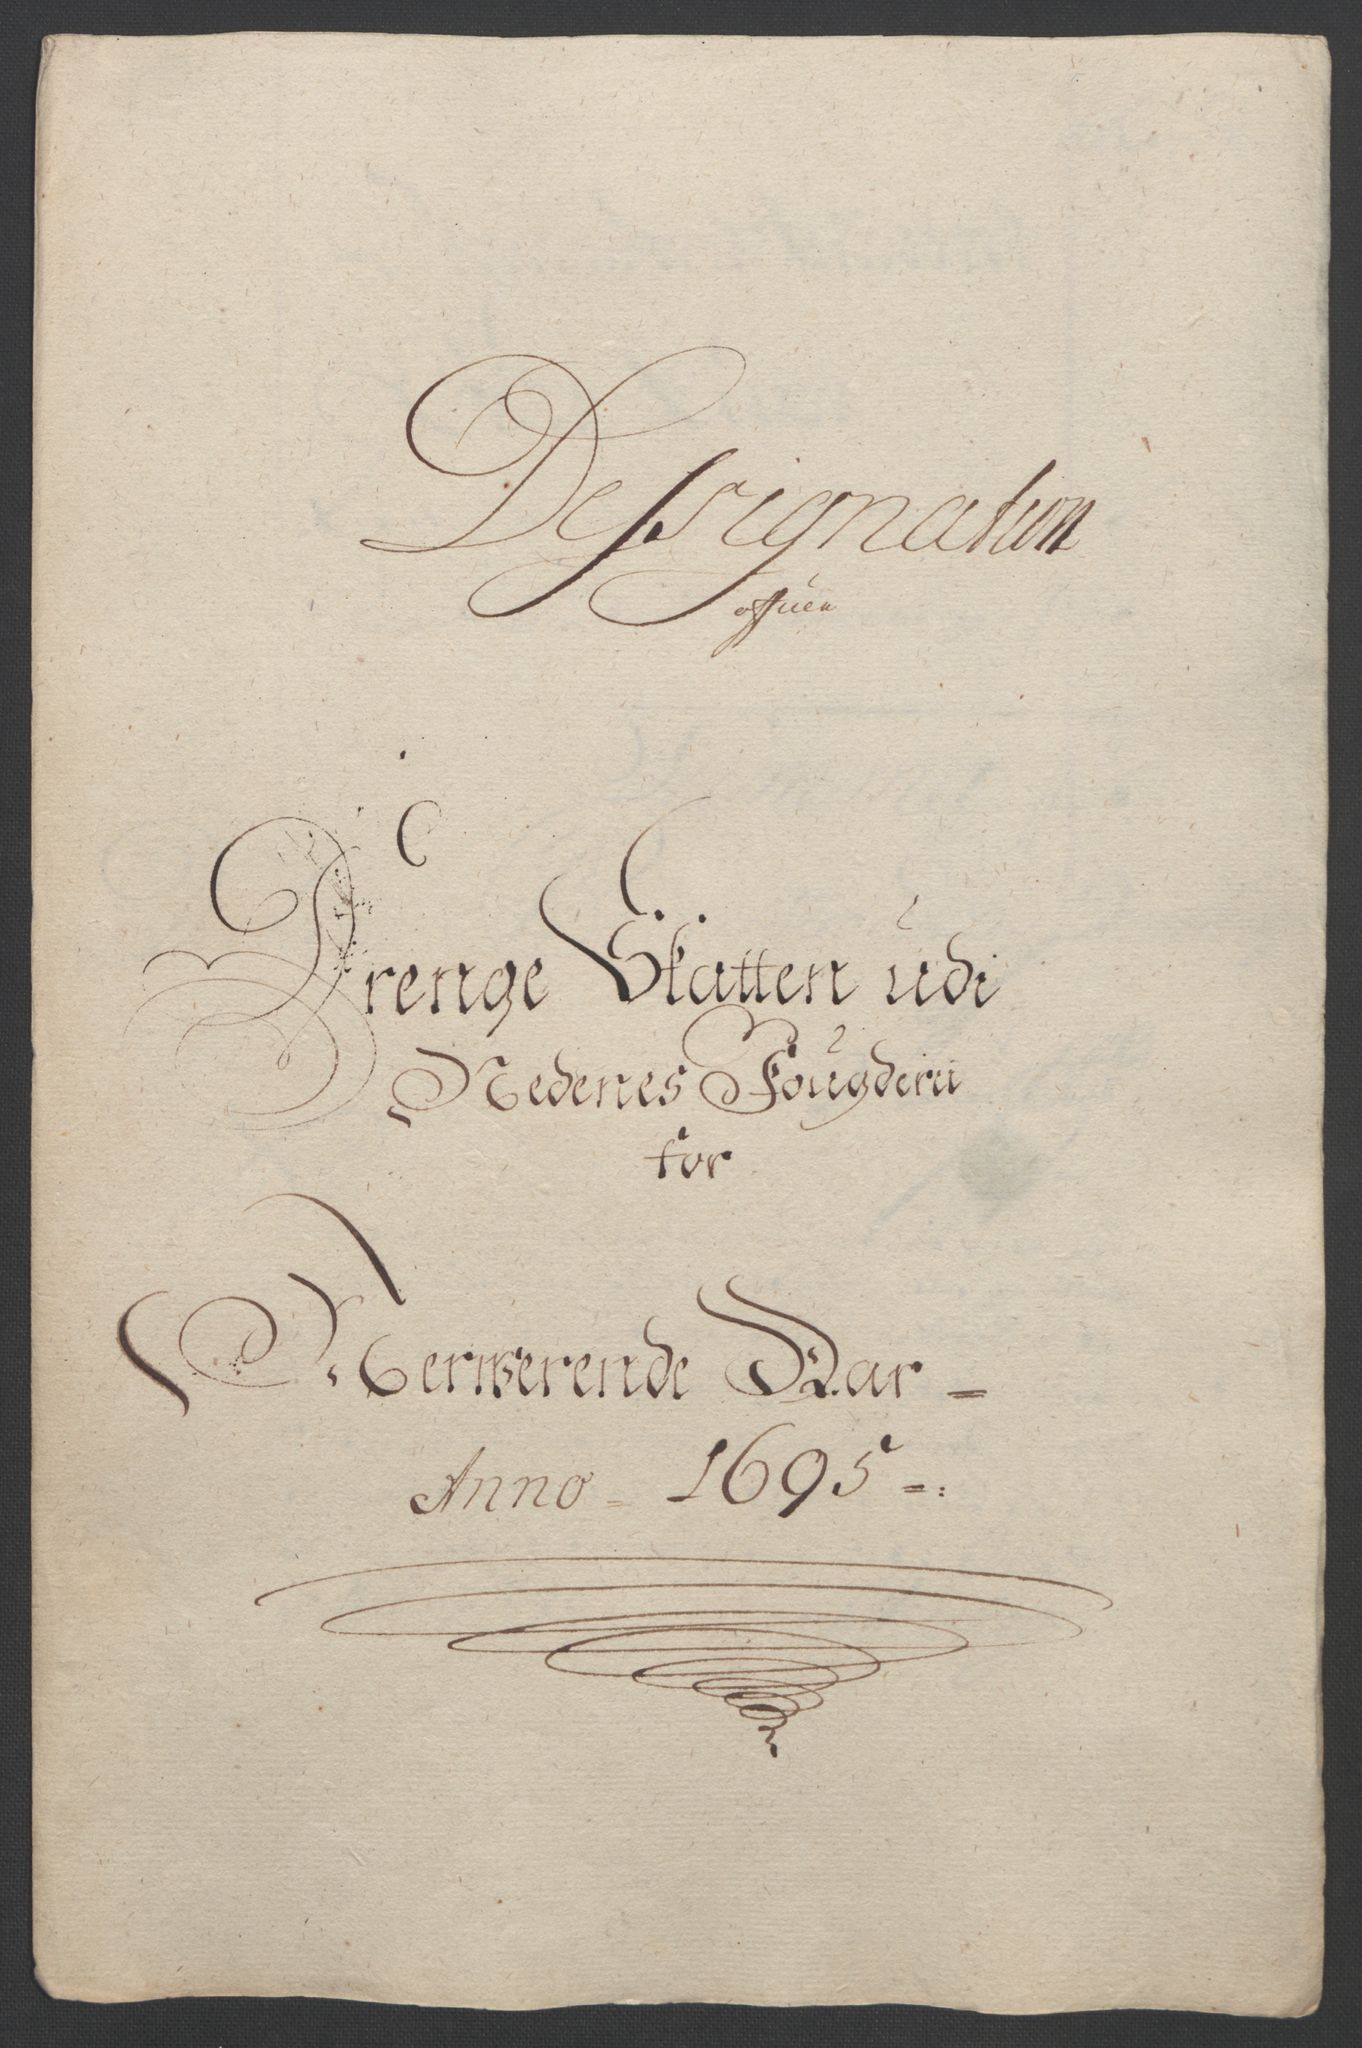 Dessignation
offuer
Drenge Skatten udi
Nedenes Fougderii
for
Nerwerende Aar -
Anno - 1695 -.